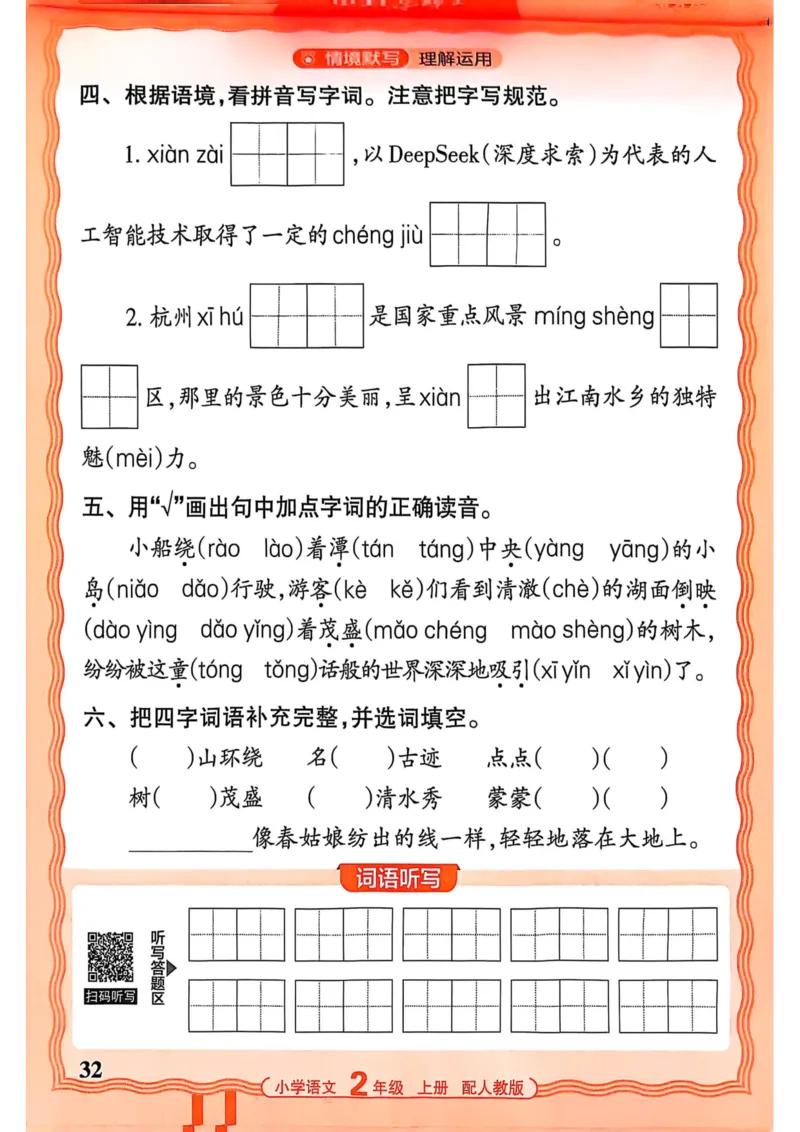 情境默写 理解运用
四、根据语境,看拼音写字词。注意把字写规范。
1. xiàn zài ,以 DeepSeek(深度求索)为代表的人
工智能技术取得了一定的 chéng jiù 。
2. 杭州 xī hú 是国家重点风景 míng shèng
区,那里的景色十分美丽,呈 xiàn 出江南水乡的独特
魅(mèi)力。
五、用“√”画出句中加点字词的正确读音。
小船绕(rào lào)着潭(tán táng)中央(yàng yāng)的小
岛(niǎo dǎo)行驶,游客(kè kě)们看到清澈(chè)的湖面倒映
(dào yìng dǎo yǐng)着茂盛(mǎo chéng mào shèng)的树木,
纷纷被这童(tóng tǒng)话般的世界深深地吸引(xī yǐn xǐ yìn)了。
六、把四字词语补充完整,并选词填空。
( )山环绕 名( )古迹 点点( )( )
树( )茂盛 ( )清水秀 蒙蒙( )( )
____________像春姑娘纺出的线一样,轻轻地落在大地上。
词语听写
听写答题区
扫码听写
32
小学语文 2年级 上册 配人教版